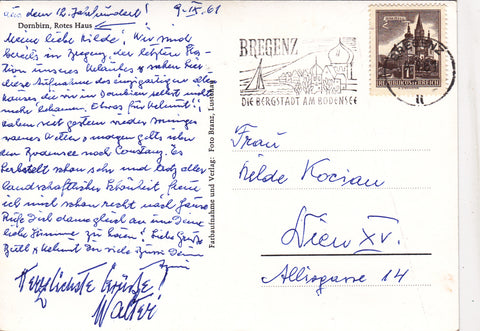 aus dem 12. Jahrhundert!
9.IX.61
Dornbirn, Rotes Haus
Meine liebe Hilde! Wir sind
bereits in Bregenz, der letzten Sta-
tion unseres Urlaubes, u. haben hier
diese Aufnahme des einzigartigen alten
Hauses, die wir in Dornbirn selbst nicht
mehr bekamen. Etwas für Helmut!
haben seit gestern wieder
warmes Wetter u. morgen geht's über
den Bodensee nach Constanz. Es
herbstelt schon sehr und trotz aller
landschaftlicher Schönheit, freue
ich mich schon recht nach Hause
Rufe Dich dann gleich an um Deine
liebe Stimme zu hören! Liebe Grüße
u. Helmut Dir viele Bussi Deine
Herzlichste Grüße!
Walter
Farbaufnahme und Verlag: Foto Branz, Lustenau
BREGENZ
DIE BERGSTADT AM BODENSEE
REPUBLIK ÖSTERREICH
Frau
Hilde Kocian
Wien XV.
Alliogasse 14